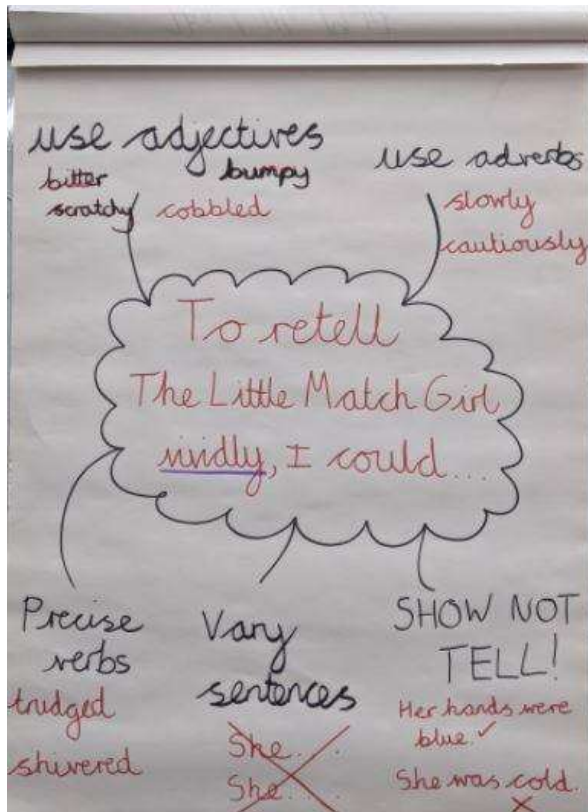 use adjectives
bitter bumpy
scratchy cobbled
use adverbs
slowly
cautiously
To retell
The Little Match Girl
vividly, I could...
Precise
verbs
trudged
shivered
Vary
sentences
She...
She...
SHOW NOT
TELL!
Her hands were
blue. ✓
She was cold.